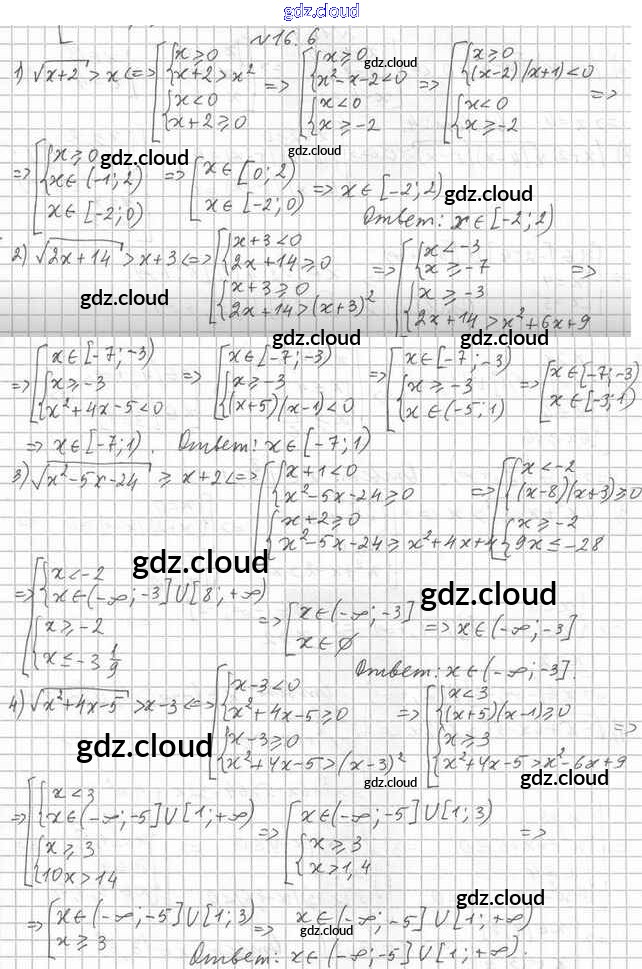 gdz.cloud
№16.6
1) √(x+2) > x <=> [ { x ≥ 0 ; x+2 > x² ; { x < 0 ; x+2 ≥ 0 => [ { x ≥ 0 ; x²-x-2 < 0 ; { x < 0 ; x ≥ -2 => [ { x ≥ 0 ; (x-2)(x+1) < 0 ; { x < 0 ; x ≥ -2 =>
gdz.cloud
=> [ { x ≥ 0 ; x ∈ (-1; 2) ; x ∈ [-2; 0) => [ x ∈ [0; 2) ; x ∈ [-2; 0) => x ∈ [-2; 2)
gdz.cloud gdz.cloud gdz.cloud
Ответ: x ∈ [-2; 2)
2) √(2x+14) > x+3 <=> [ { x+3 < 0 ; 2x+14 ≥ 0 ; { x+3 ≥ 0 ; 2x+14 > (x+3)² => [ { x < -3 ; x ≥ -7 ; { x ≥ -3 ; 2x+14 > x²+6x+9 =>
gdz.cloud gdz.cloud
=> [ x ∈ [-7; -3) ; { x ≥ -3 ; x²+4x-5 < 0 => [ x ∈ [-7; -3) ; { x ≥ -3 ; (x+5)(x-1) < 0 => [ x ∈ [-7; -3) ; { x ≥ -3 ; x ∈ (-5; 1) => [ x ∈ [-7; -3) ; x ∈ [-3; 1)
gdz.cloud gdz.cloud
=> x ∈ [-7; 1). Ответ: x ∈ [-7; 1)
3) √(x²-5x-24) ≥ x+2 <=> [ { x+1 < 0 ; x²-5x-24 ≥ 0 ; { x+2 ≥ 0 ; x²-5x-24 ≥ x²+4x+4 => [ { x < -2 ; (x-8)(x+3) ≥ 0 ; { x ≥ -2 ; 9x ≤ -28
gdz.cloud gdz.cloud
=> [ { x < -2 ; x ∈ (-∞; -3] ∪ [8; +∞) ; { x ≥ -2 ; x ≤ -3 1/9 => [ x ∈ (-∞; -3] ; x ∈ ∅ => x ∈ (-∞; -3]
Ответ: x ∈ (-∞; -3].
4) √(x²+4x-5) > x-3 <=> [ { x-3 < 0 ; x²+4x-5 ≥ 0 ; { x-3 ≥ 0 ; x²+4x-5 > (x-3)² => [ { x < 3 ; (x+5)(x-1) ≥ 0 ; { x ≥ 3 ; x²+4x-5 > x²-6x+9 =>
gdz.cloud gdz.cloud gdz.cloud
=> [ { x < 3 ; x ∈ (-∞; -5] ∪ [1; +∞) ; { x ≥ 3 ; 10x > 14 => [ x ∈ (-∞; -5] ∪ [1; 3) ; { x ≥ 3 ; x > 1,4 =>
gdz.cloud
=> [ x ∈ (-∞; -5] ∪ [1; 3) ; x ≥ 3 => x ∈ (-∞; -5] ∪ [1; +∞)
gdz.cloud
Ответ: x ∈ (-∞; -5] ∪ [1; +∞).